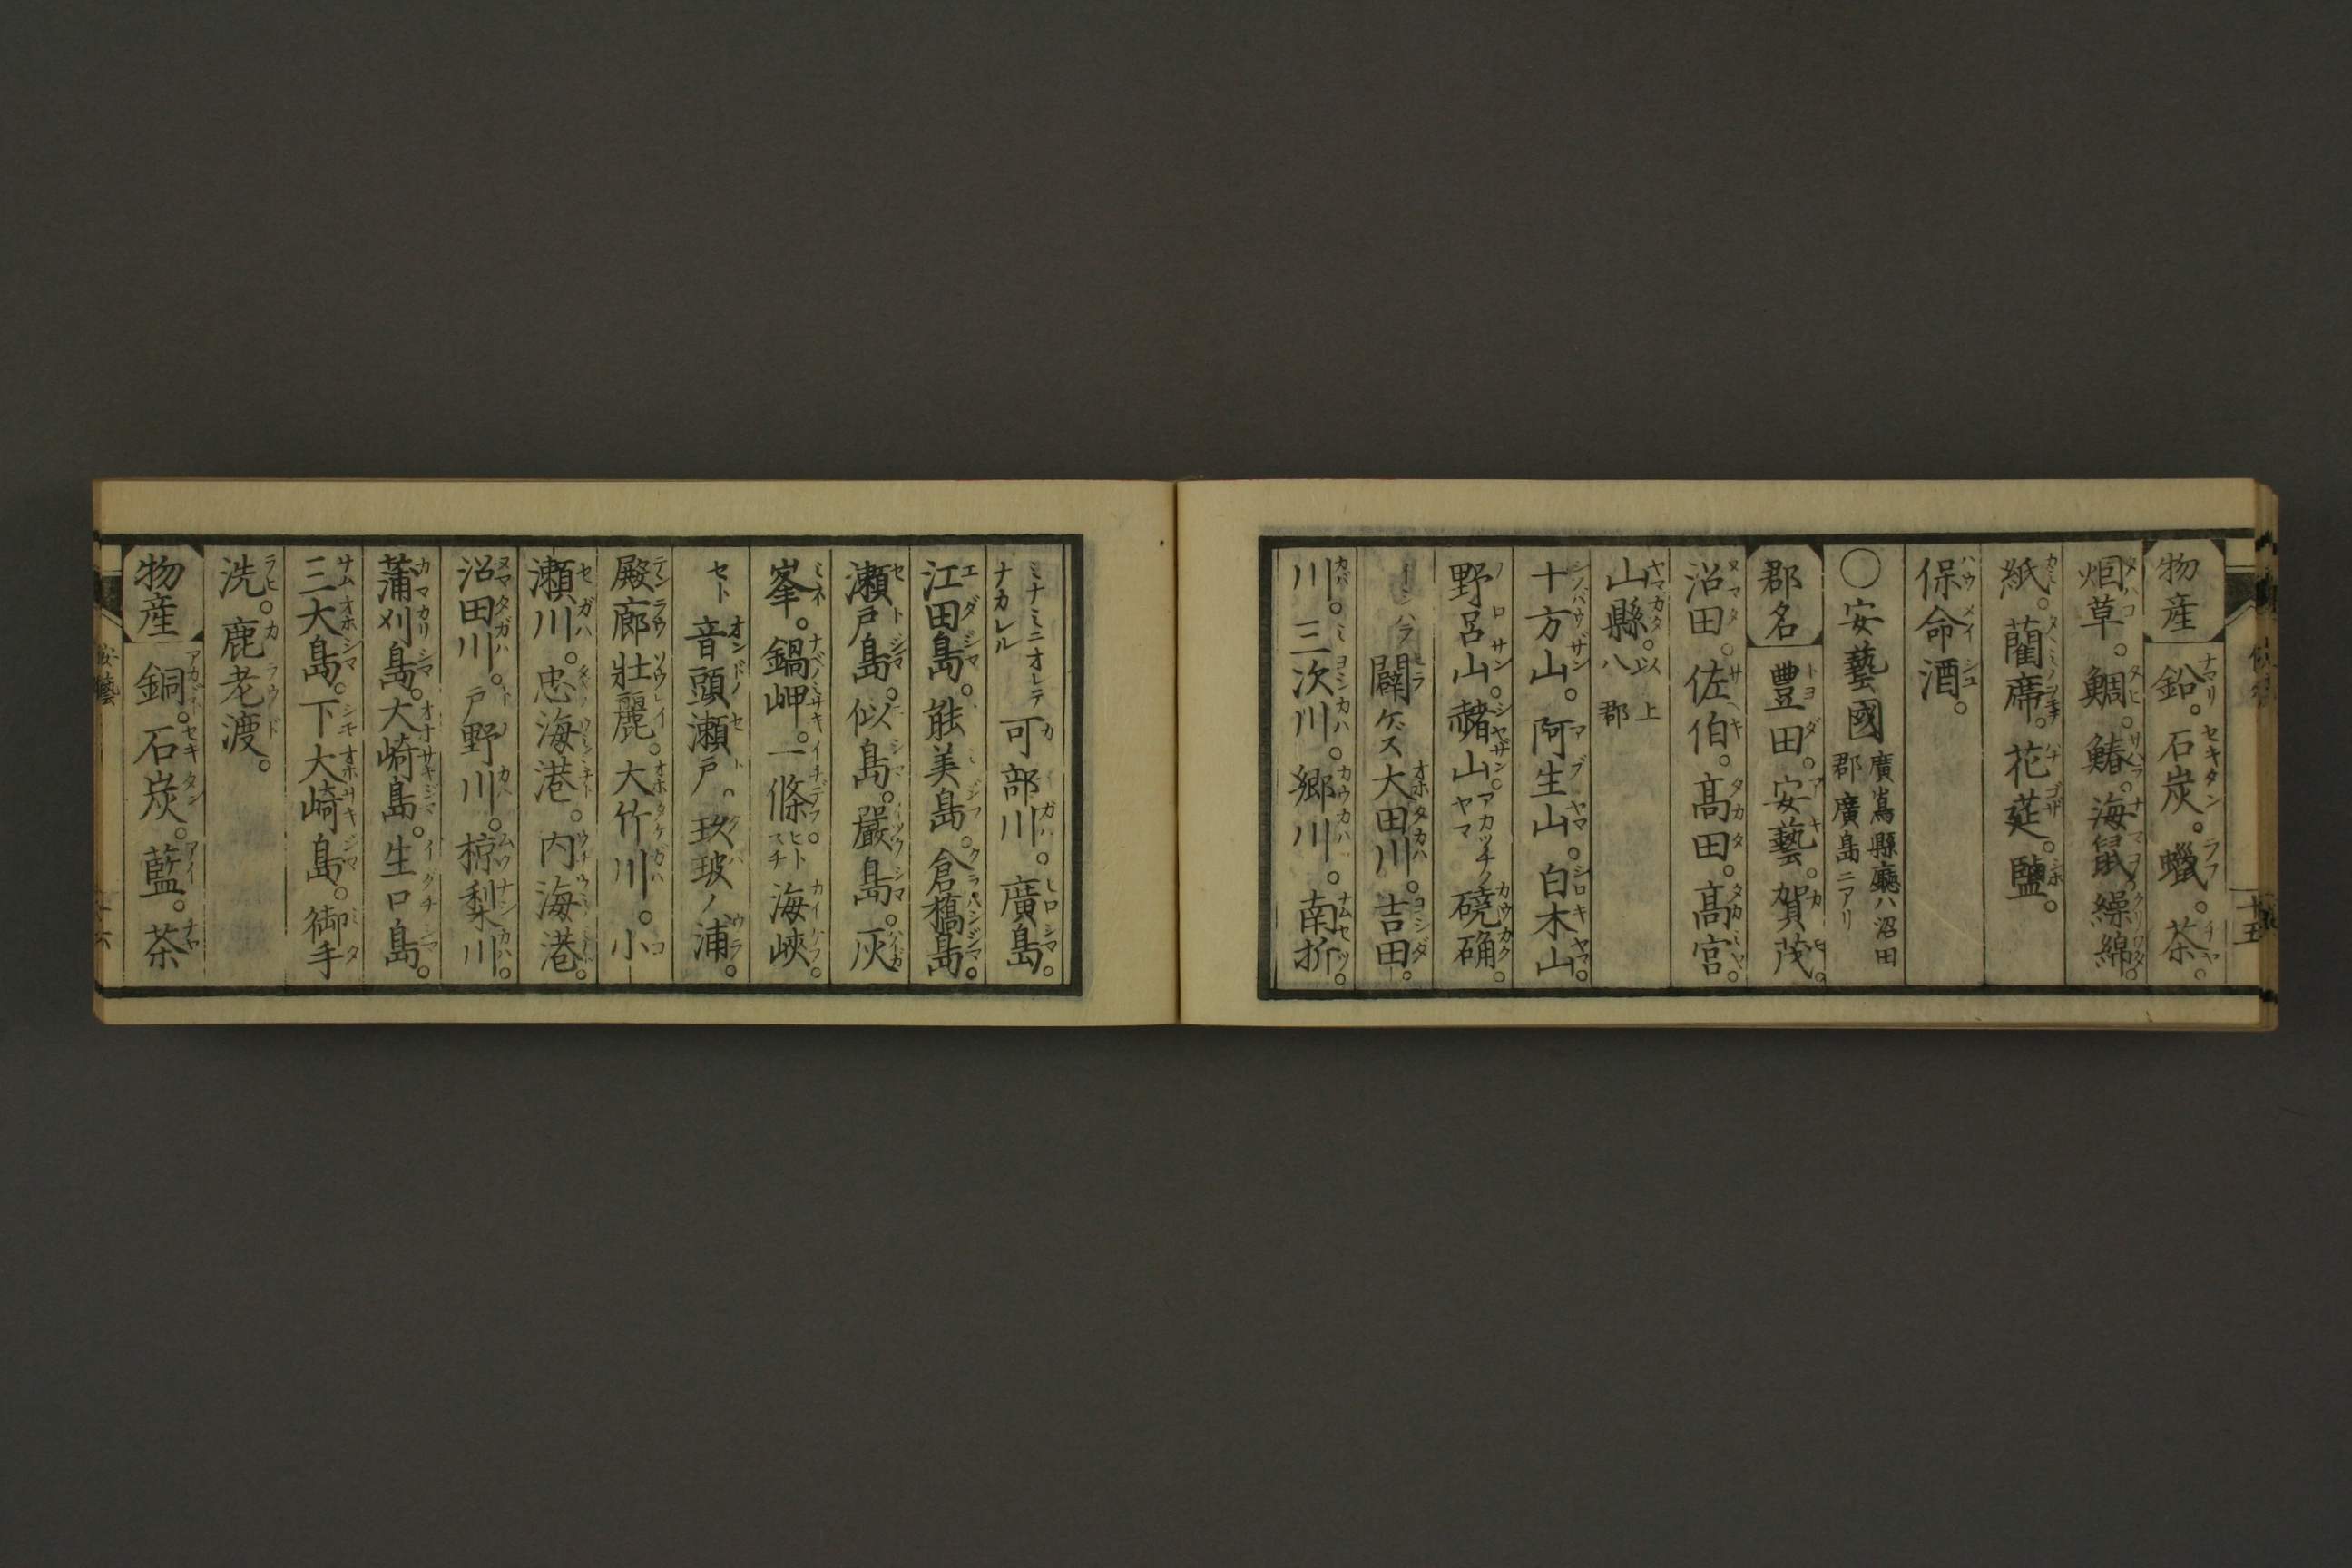 物産 鉛。石炭。蠟。茶。
烟草。鯛。鰆。海鼠。繰綿。
紙。藺席。花莚。鹽。
保命酒。
〇安藝國 廣嶌縣廳ハ沼田郡廣島ニアリ
郡名 豊田。安藝。賀茂。
沼田。佐伯。髙田。髙宮。
山縣。以上八郡
十方山。阿生山。白木山。
野呂山。赭山。アカツチノヤマ 磽确
闢ゲズ大田川。吉田
川。三次川。郷川。南折。
ミナミニオレテナカレル 可部川。廣島。
江田島。能美島。倉橋島。
瀬戸島。似島。嚴島。灰
峯。鍋岬。一條。ヒトスチ 海峽。
セト 音頭瀬戸。玖玻ノ浦。
殿廊壮麗。大竹川。小
瀬川。忠海港。内海港。
沼田川。戸野川。椋梨川。
蒲刈島。大崎島。生口島。
三大島。下大崎島。御手
洗。鹿老渡。
物産 銅。石炭。藍。茶
安藝
十五